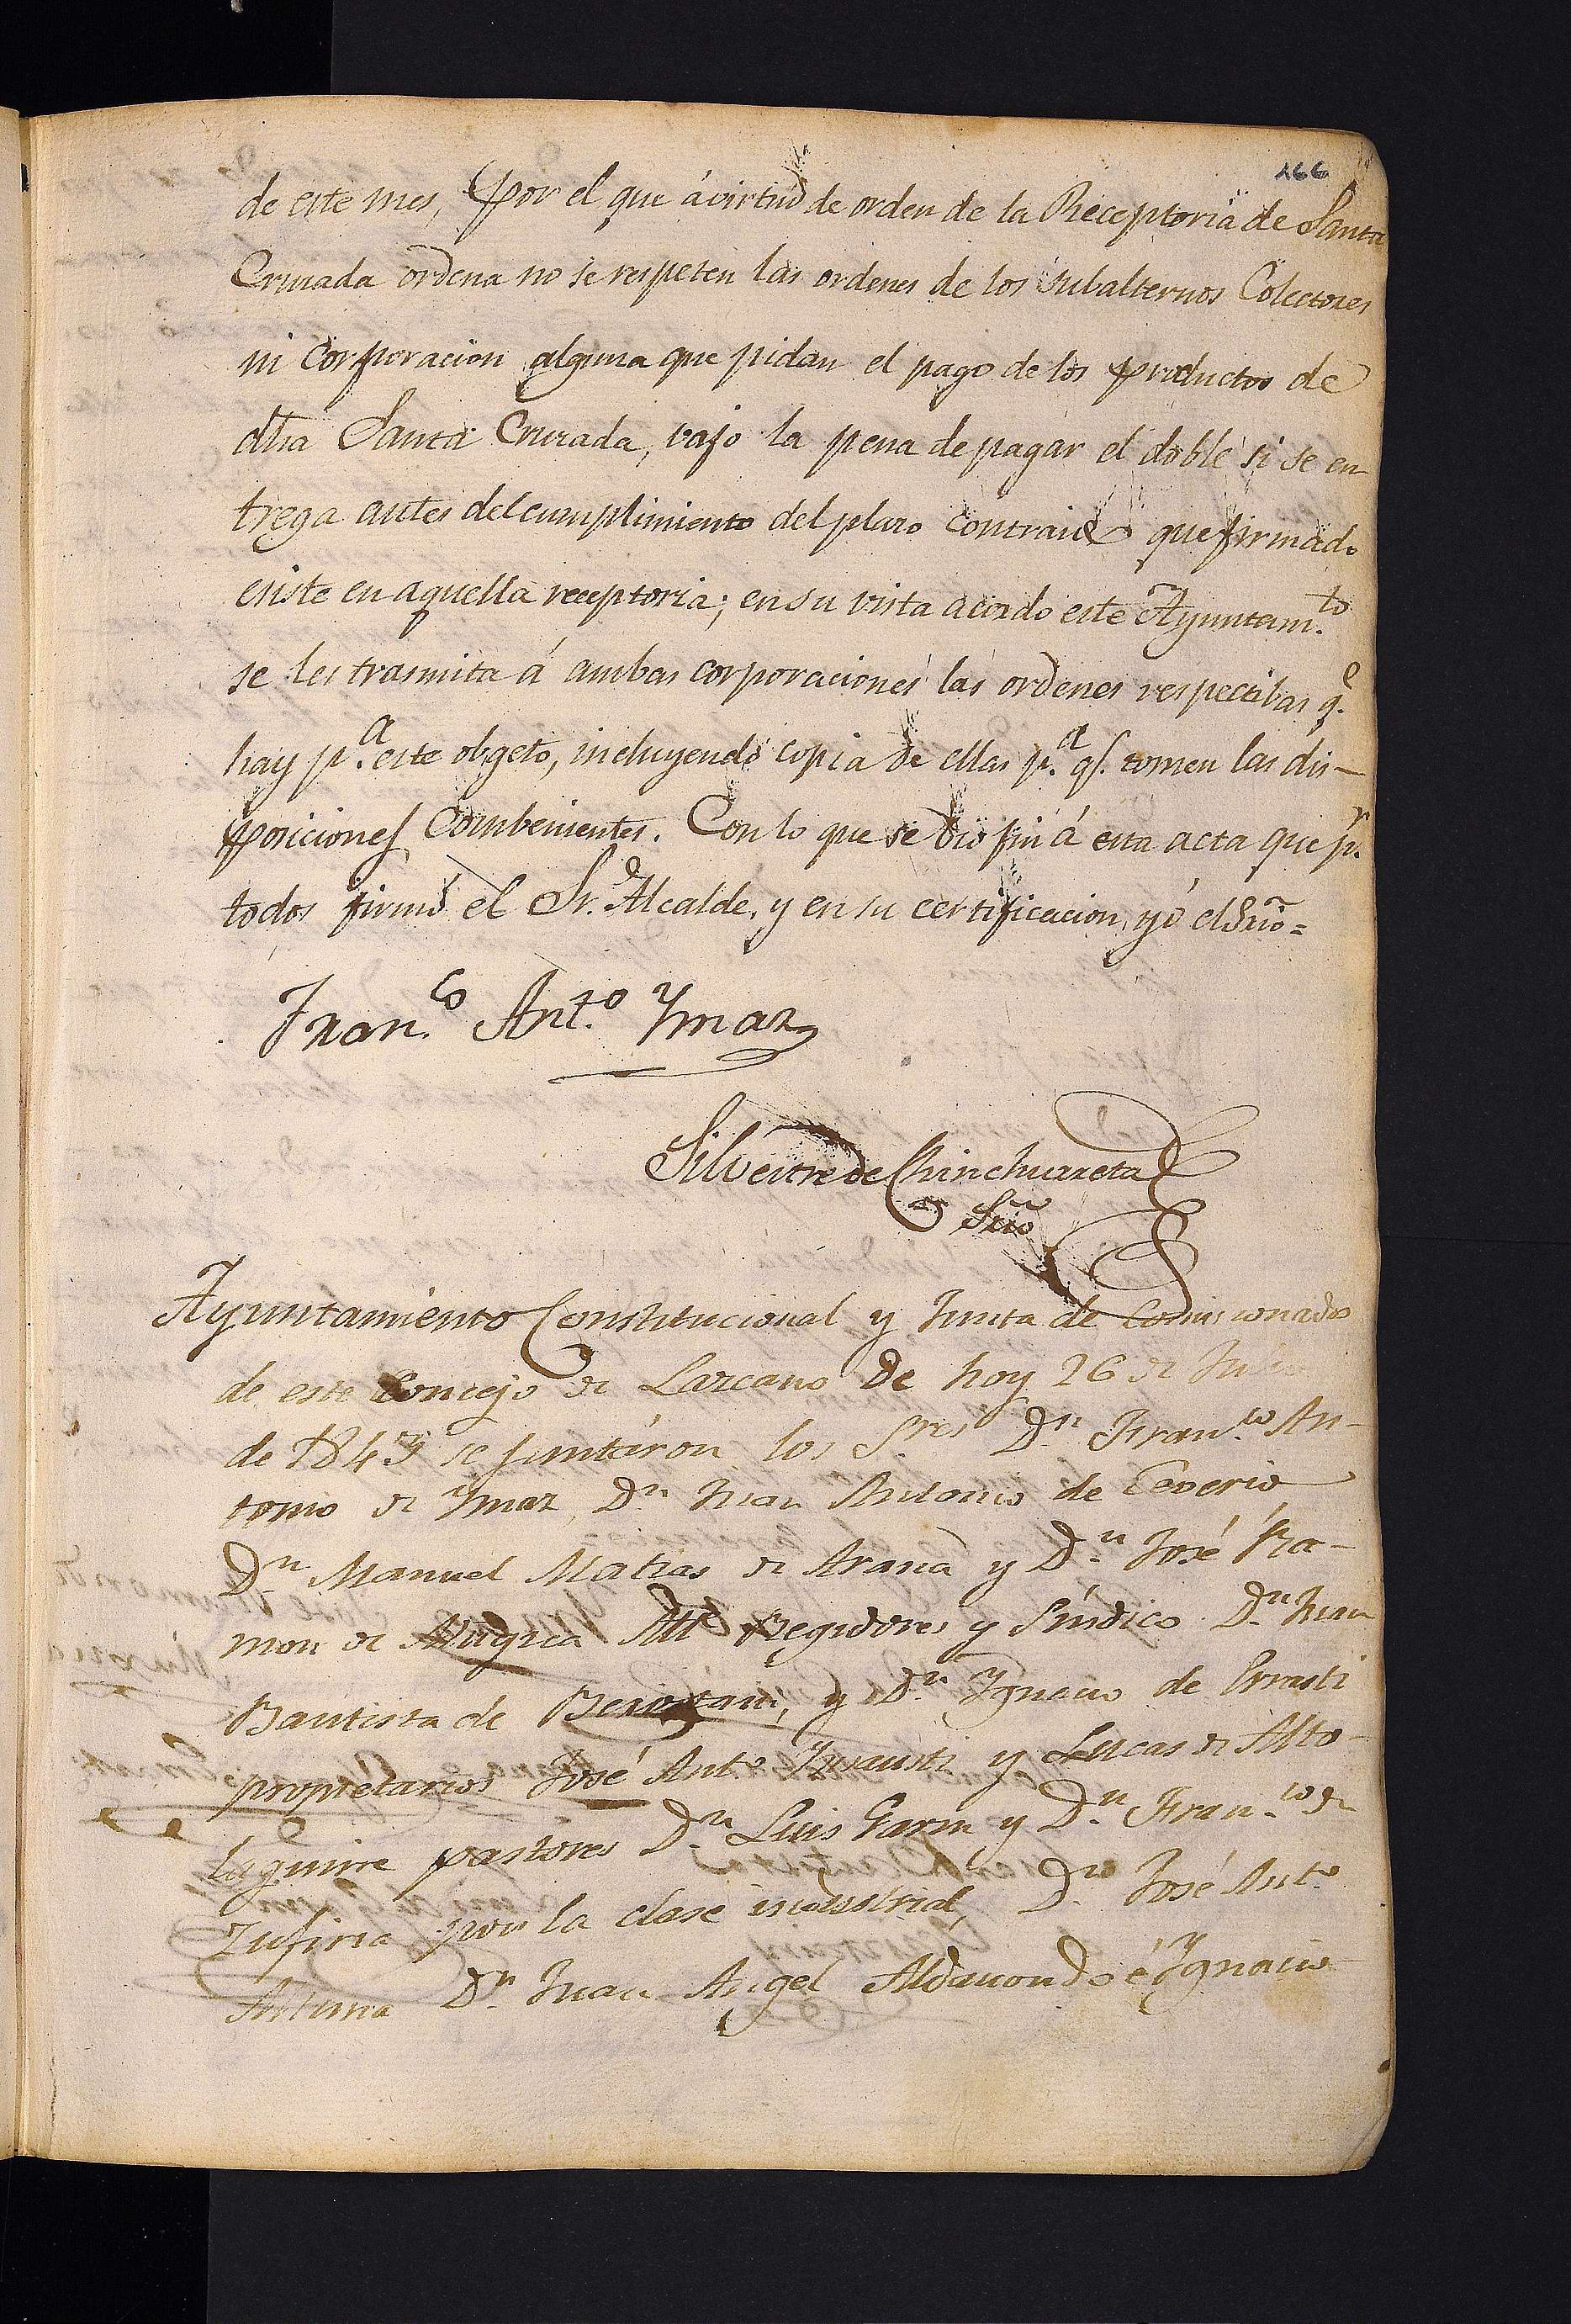 166
de este mes, por el que á virtud de orden de la Receptoria de Santa
Cruzada ordena no se respeten las ordenes de los subalternos Colectores
ni corporacion alguna que pidan el pago de los productos de
dha Santa Cruzada, vajo la pena de pagar el doble si se en
trega antes del cumplimiento del plazo contraido que firmado
eniste en aquella receptoria; en su vista acordo este Ayuntam.to
se les trasmita á ambas corporaciones las ordenes respectibas q.e
hay p.a este obgeto, incluyendo copia de ellas p.a q.e tomen las dis-
posiciones combenientes. Con lo que se dio fin á esta acta que p.r
todos firmó el Sr. Alcalde, y en su certificacion, yó el Srio=
Fran.co Ant.o Ymaz
Silvestre de Chinchurreta
Srio
Ayuntamiento Constitucional y Junta de Comisionados
de este Concejo de Lazcano de hoy 26 de
de 1843 se juntáron los S.res D.n Fran.co An-
tonio de Ymaz, D.n Juan Antonio de Ceverio
D.n Manuel Matias de Arana y D.n José Ra-
mon de Mugica Alte Regidores y Síndico D.n Juan
Bautista de y D.n Ygnacio de Errasti
propietarios José Ant.o Yrrausti y Lucas de Alto-
laguirre pastores D.n Luis Garin y D.n Fran.co de
Zufiria por la clase industrial, D.n José Ant.o
D.n Juan Angel Aldavondo é Ygnacio